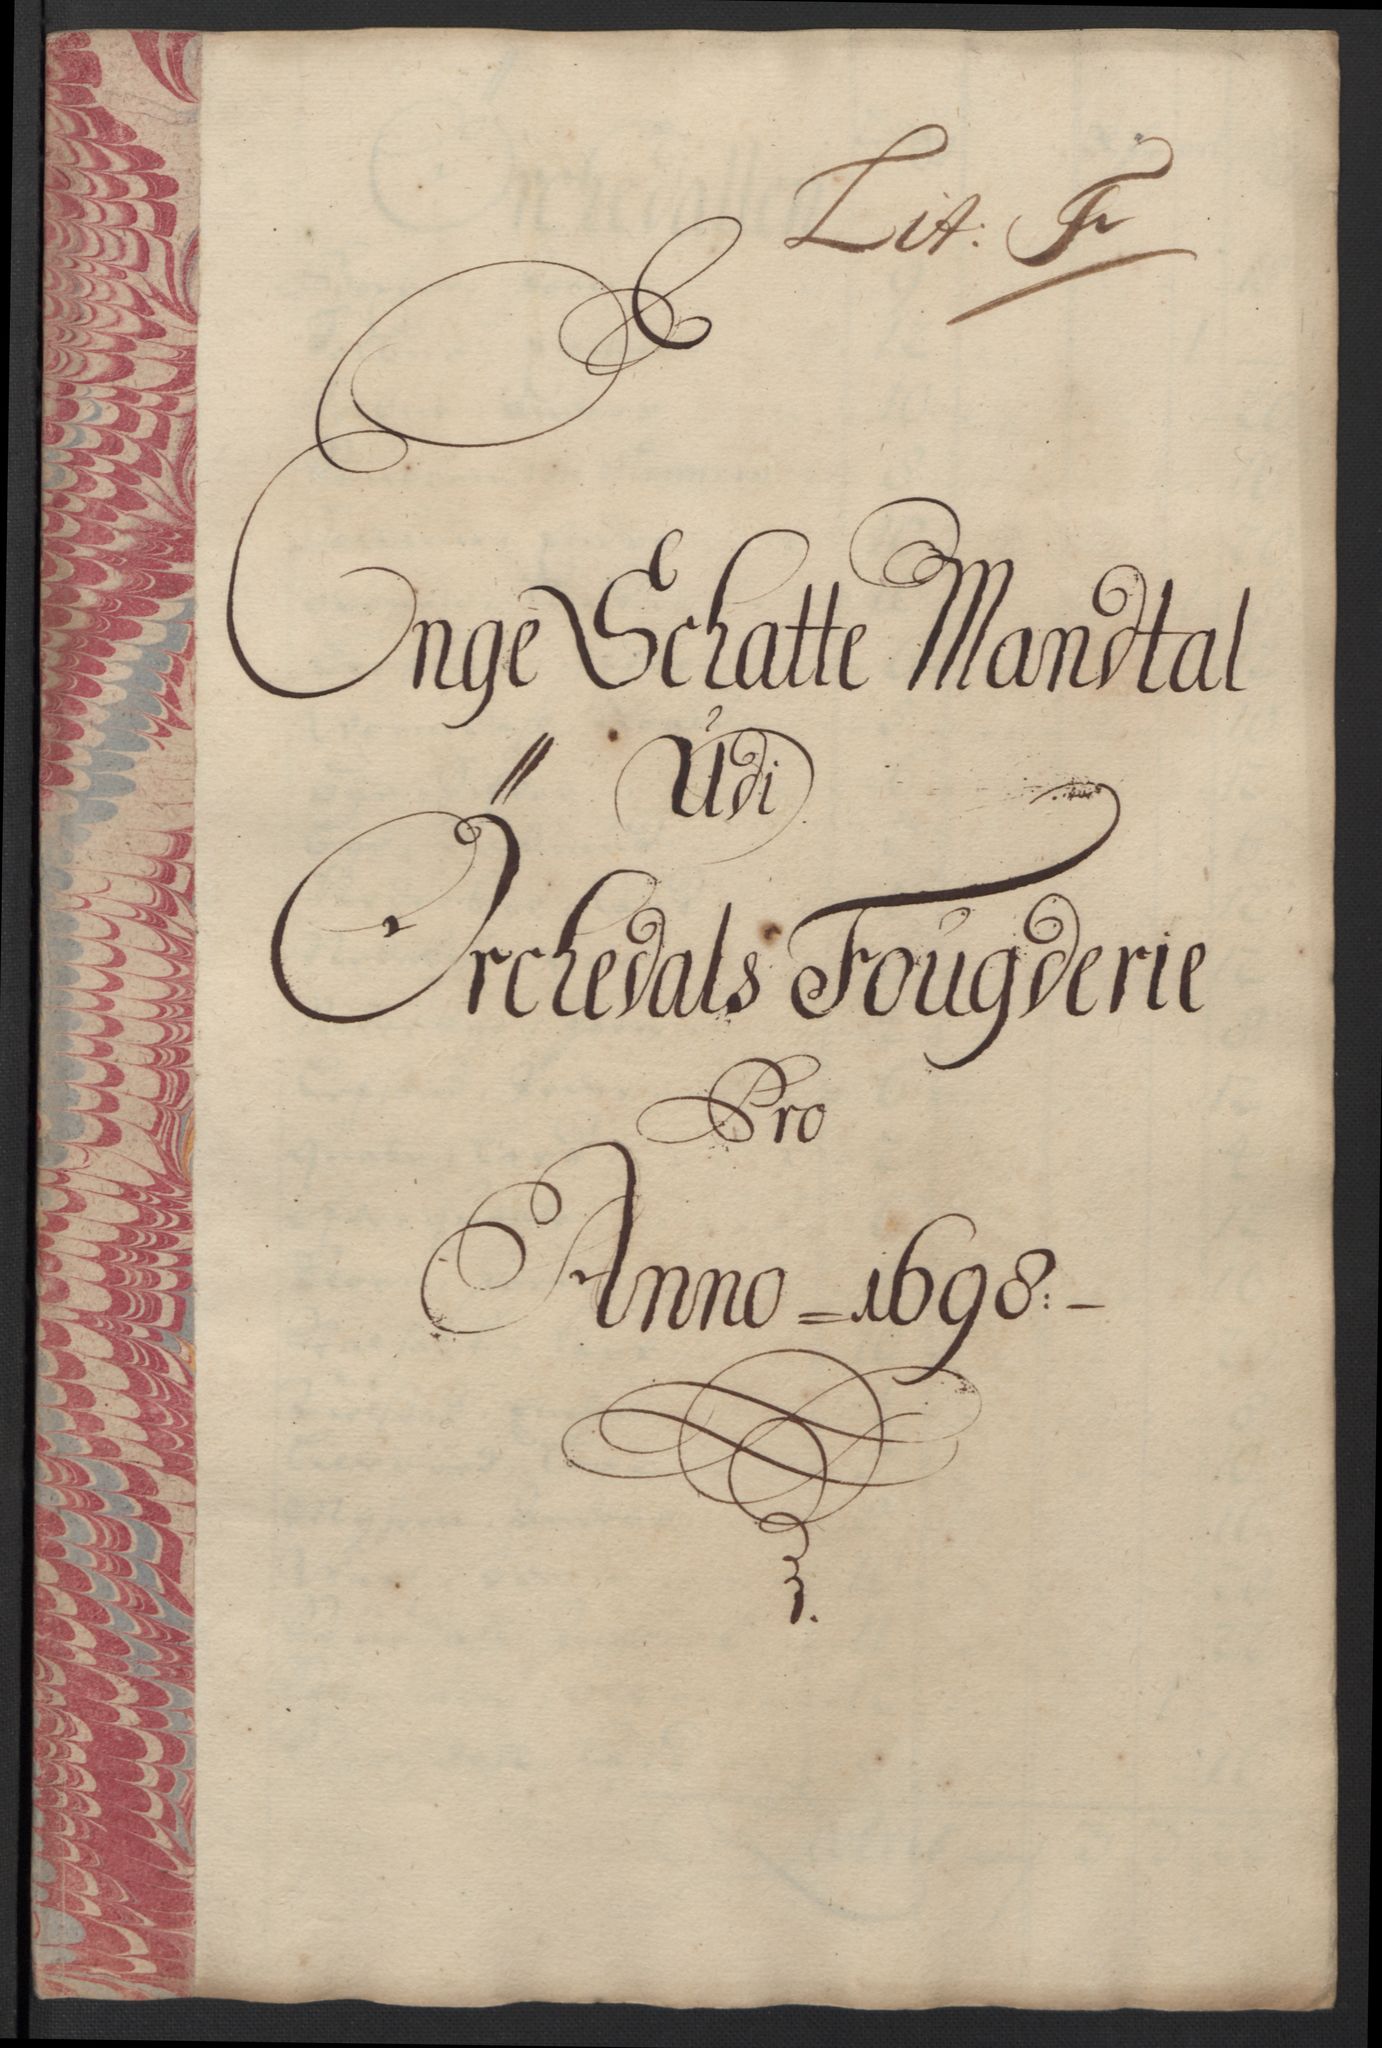 Lit: F
Enge Schatte Mandtal
Udi
Örchedals Fougderie
Pro
Anno = 1698:-